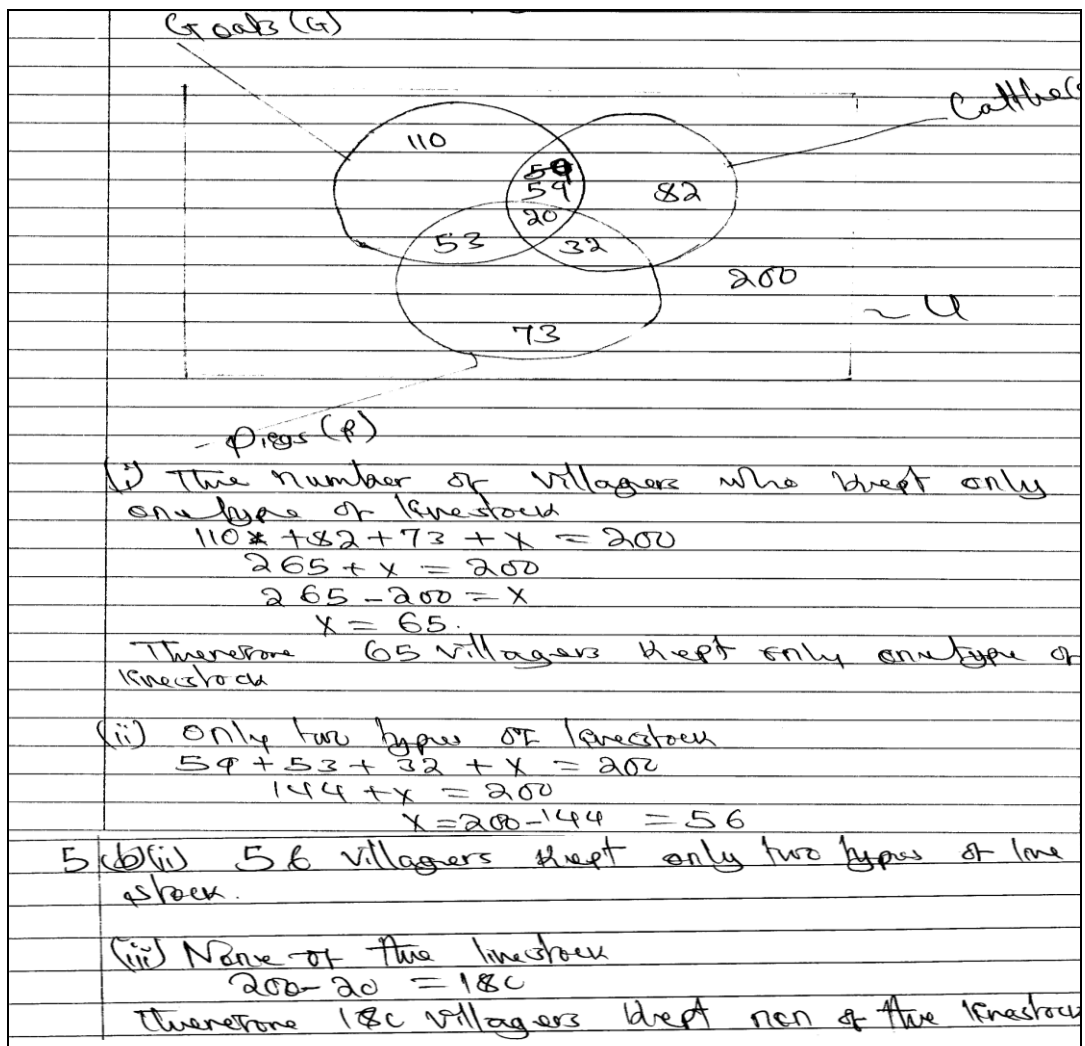 Goats (G)
Cattle (
110
59
59
82
20
53
32
200
U
73
Piegs (P)
(i) The number of villagers who kept only
one type of livestock
110 + 82 + 73 + x = 200
265 + x = 200
265 - 200 = x
x = 65.
Therefore 65 villagers kept only one type of
livestock
(ii) only two types of livestock
59 + 53 + 32 + x = 200
144 + x = 200
x = 200 - 144 = 56
5 (b)(ii) 56 villagers kept only two types of live
stock.
(iii) None of the livestock
200 - 20 = 180
Therefore 180 villagers kept non of the livestock